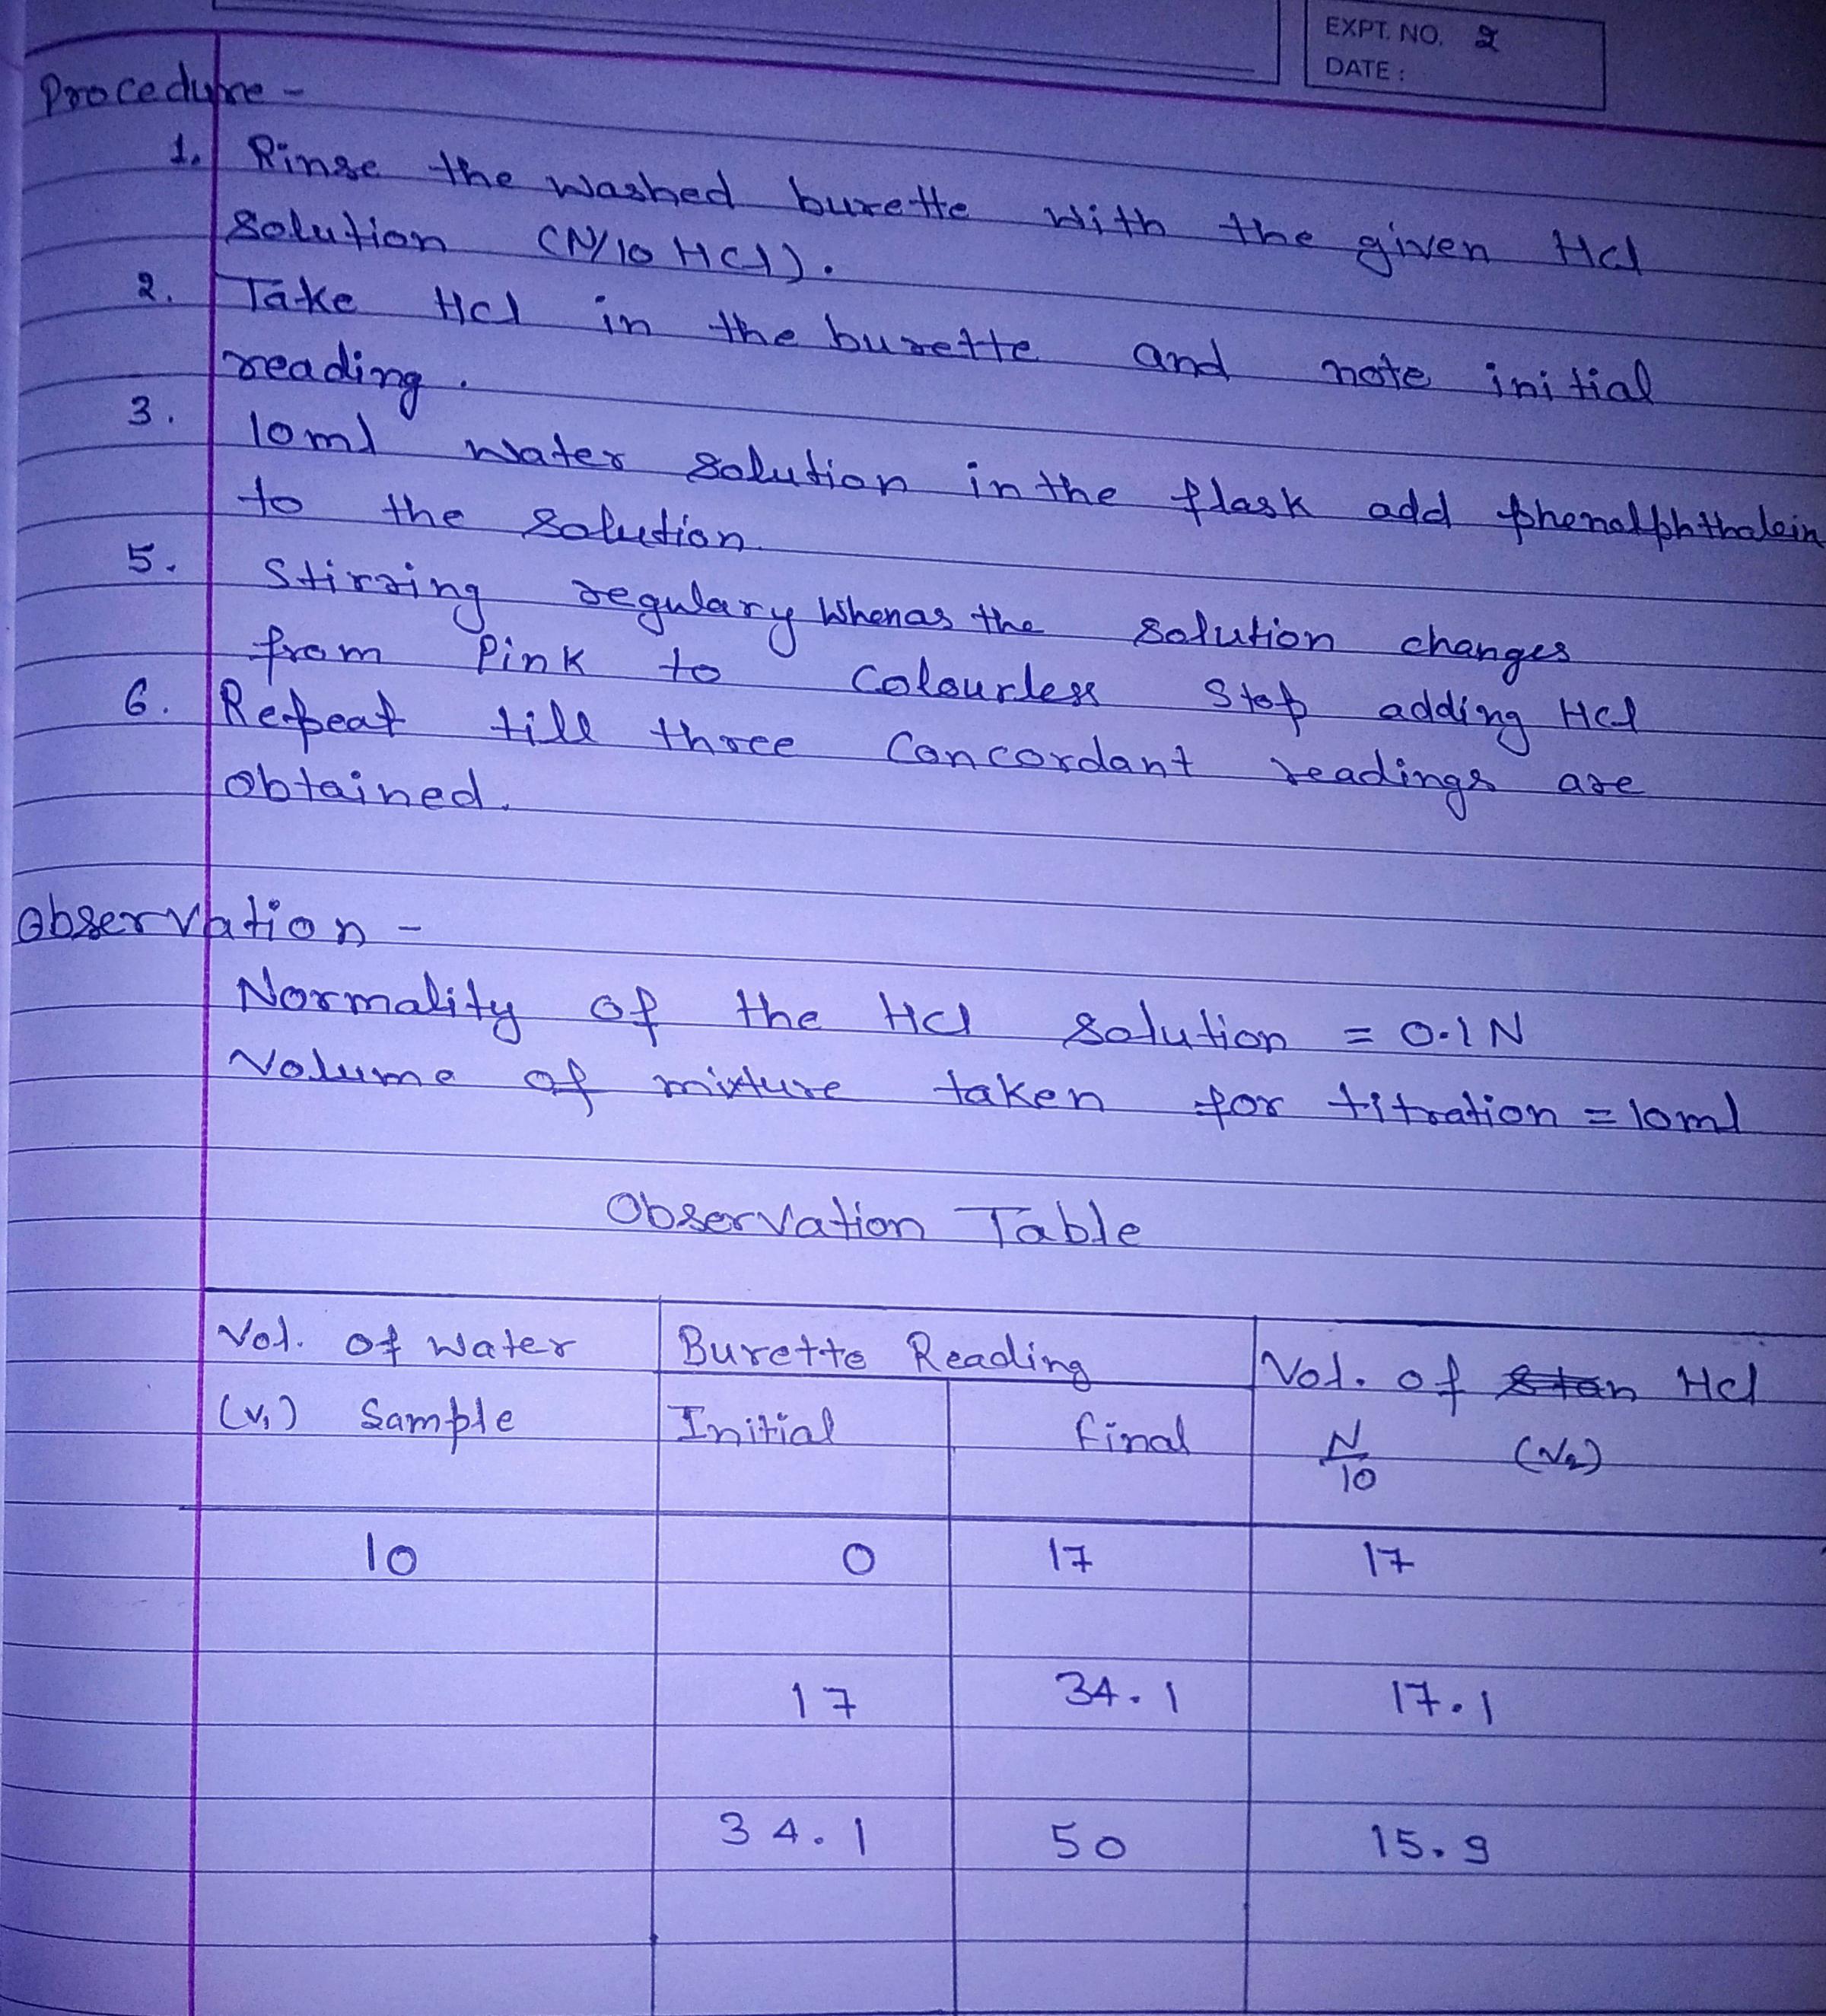 EXPT. NO. 2
DATE :
Procedure -
1. Rinse the washed burette with the given Hcl
solution (N/10 HCl).
2. Take Hcl in the burette and note initial
reading.
3. 10ml water solution in the flask add phenolphthalein
to the solution
5. Stirring regulary whenas the solution changes
from Pink to Colourless Stop adding Hcl
6. Repeat till three Concordant readings are
obtained.
Observation -
Normality of the Hcl solution = 0.1N
Volume of mixture taken for titration = 10ml
Observation Table
Vol. of water Burette Reading Vol. of stan Hcl
(V1) Sample Initial final N/10 (V2)
10 0 17 17
17 34.1 17.1
34.1 50 15.9